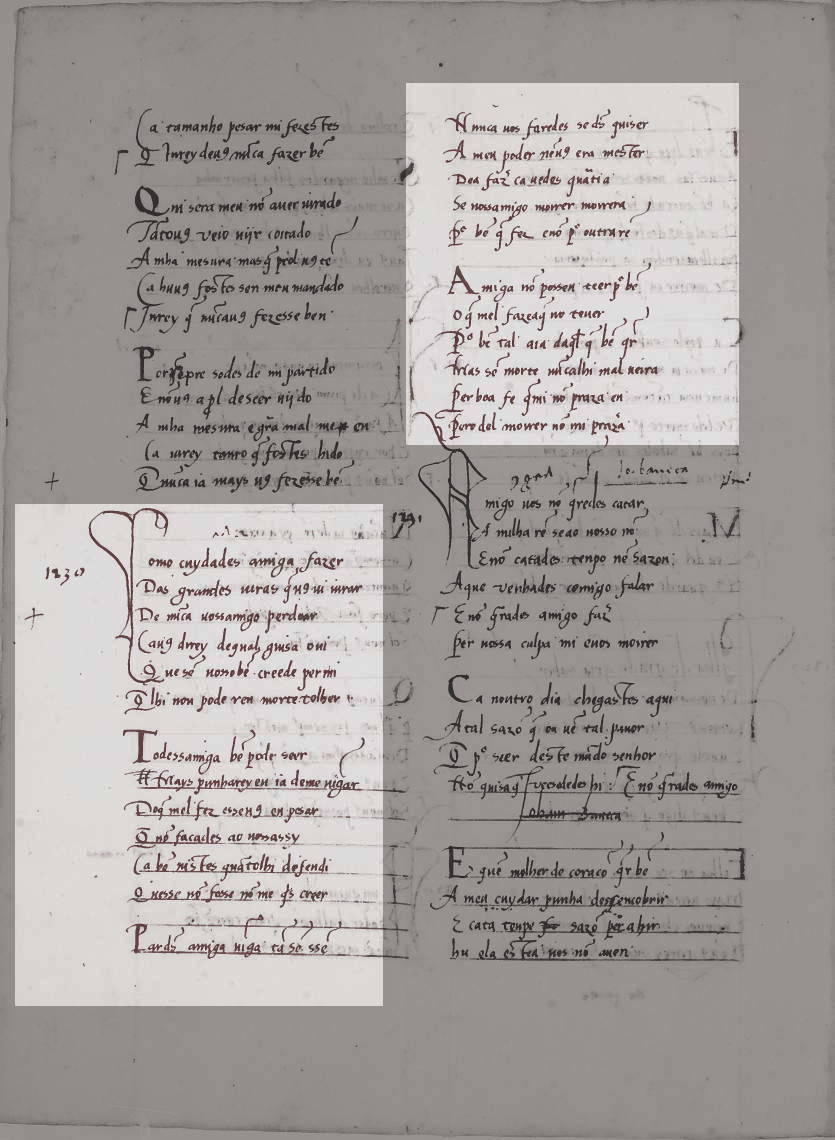 Ca tamanho pesar mi fezestes
Q̃ Jurey deuꝯ nũca fazer bẽ
Qui sera meu nõ auer uirado
Tãtouꝯ veio uijr coitado
A mha mesura mas q̃
Ca huuꝯ fostes sen meu mandado
Jurey q̃ nũcauꝯ fezesse ben
Por sẽpre sodes de mi partido
E nõuꝯ a pl descer uijdo
A mha mesura e gr̃a mal me en
Ca iurey tanto q̃ fostes hido
Q̃ nũca ia mays uꝯ fezesse bẽ
1230
Como cuydades amiga fazer
Das grandes iuras q̃uꝯ ui iurar
De nũca uossamigo perdoar
Cauꝯ direy de qual guisa oui
Que sẽ uosso bẽ creede per mi
Q̃ lhi non pode ren morte tolher
Todessamiga bẽ pode seer
Mays punharey en ia deme uĩgar
Do q̃ mel fez e sseuꝯ en pesar
Q̃ nõ façades ao uossassy
Ca bẽ uistes quãtolhi defendi
Q̃ uesse nõ fosse nõ me q̃s creer
Par ds̃ amiga uĩgãça tã sẽ ssẽ
Nunca uos faredes se ds̃ quiser
A meu poder nẽuꝯ era mester
Dea faz̃ ca uedes quãtia
Se uossamigo morrer morrera
P̃o bẽ q̃ fez e nõ p̃o outra rẽ
Amiga nõ possen teer p̃o bẽ
O q̃ mel faz ea q̃ no teuer
P̃o bẽ tal aia daq̃l q̃ bẽ q̃r
Mas sẽ morte nũcalhi mal ueira
Per boa fe q̃ mi nõ praza en
Pero del morrer nõ mi praz̃a
1231
Jo. bauica
Amigo uos nõ q̃redes catar
A nulha rẽ se ao uosso nõ
E nõ catades tenpo nẽ sazon
A que venhades comigo falar
E nõ q̃rades amigo faz̃
Per uossa culpa mi e uos moirer
Ca noutro dia chegastes aqui
A tal sazõ q̃ ou uẽ tal pauor
Q̃ p̃o seer deste mũdo senhor
Nõ quisa q̃ ſuessedes hi : E nõ q̃rades amigo
Johan Bauica
E quẽ molher de coraçõ q̃r bẽ
A meu cuydar punha dess encobrir
E cata tenpe sazõ pera hir
hu ela esten uos nõ aueri